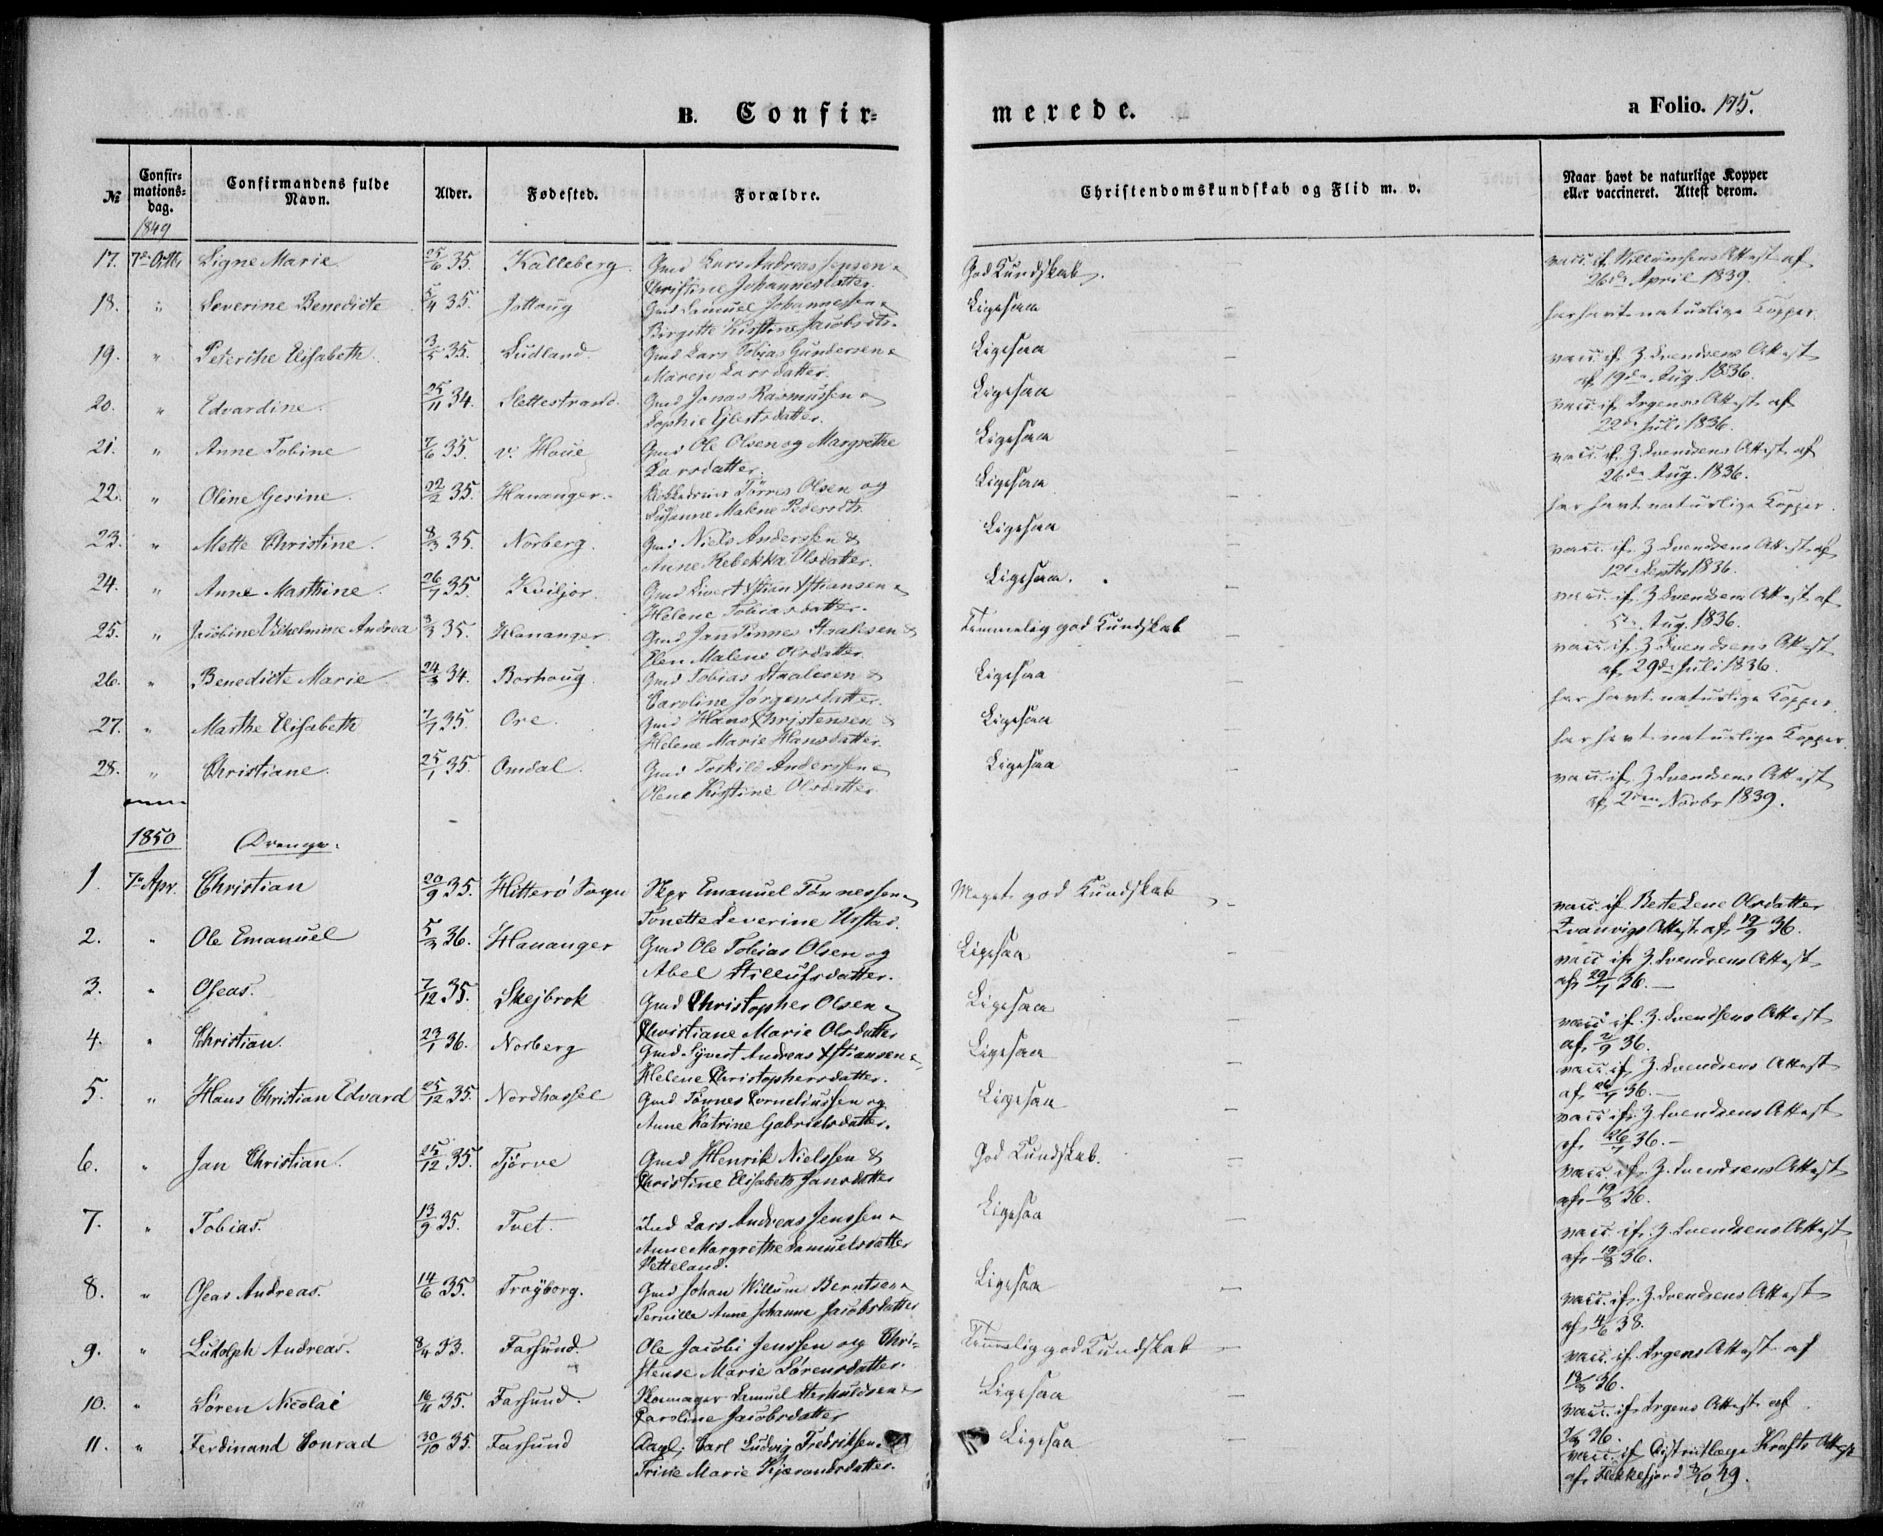 B. Confir=
merede.
a Folio. 195.
№
Confir=
mations=
dag.
Confirmandens fulde
Navn.
Alder.
Fødested.
Forældre.
Christendomskundskab og Flid m. v.
Naar havt de naturlige Kopper
eller vaccineret. Attest derom.
1849
17. 7de Octbr Signe Marie 25/6 35. Kalleberg. Gmd Lars Andreas Jensen &
Christine Johannesdatter. God Kundskab. vacc. if. Willumsens Attest af
26de April 1839.
18. " Severine Benedicte 5/4 35. Jottoug Gmd Samuel Johannessen &
Birgitte Kirstine Jacobsdtr. Ligesaa har havt naturlige Kopper.
19. " Peterine Elisabeth 3/5 35. Sudland. Gmd Lars Tobias Gundersen &
Maren Larsdatter. Ligesaa vacc. if. Z. Svendsens Attest
af 19de Aug. 1836.
20. " Edvardine. 25/11 34. Slettestrand. Gmd Jonas Rasmussen &
Sophie Eilertsdatter. Ligesaa vacc. if. Argens Attest af
22de Juli 1836.
21. " Anne Tobine 7/6 35. v. Haue Gmd Ole Olsen og Margrethe
Larsdatter. Ligesaa vacc. if. Z. Svendsens Attest af
26de Aug. 1836.
22. " Oline Gesine. 22/2 35. Hananger. Tørres Olsen og
Susanne Malene Pedersdtr. Ligesaa har havt naturlige Kopper.
23. " Mette Christine. 8/3 35. Norberg. Gmd Niels Anderssen &
Anne Rebekka Olsdatter. Ligesaa vacc. if. Z. Svendsens Attest af
12te Septbr 1836.
24. " Anne Marthine. 26/7 35. Kviljor. Gmd Sivert Xstian Xstiansen &
Helene Tobiasdatter. Ligesaa. vacc. if. Z. Svendsens Attest af
5te Aug. 1836.
25. " Jacobine Vilhelmine Andrea 3/3 35. Hananger. Gmd Jan Tønnes Staalesen &
Elen Malene Olsdatter. Temmelig god Kundskab vacc. if. Z. Svendsens Attest
af 29de Juli 1836.
26. " Benedicte Marie 24/3 34. Borhaug. Gmd Tobias Staalesen &
Caroline Jørgensdatter. Ligesaa har havt naturlige Kopper.
27. " Marthe Elisabeth 7/7 35. Ore. Gmd Hans Christensen &
Helene Marie Hansdatter. Ligesaa har havt naturlige Kopper.
28. " Christiane. 25/1 35. Omdal. Gmd Torkild Anderssen &
Olene Kistine Olsdatter Ligesaa vacc. if. Z. Svendsens Attest
af 2den Novbr 1839.
1850 Drenge.
1. 7de Apr. Christian 20/9 35. Hitterø Sogn Skpr Emanuel Tønnessen &
Tonette Severine Urstad. Meget god Kundskab vacc. if. Berte Lene Olsdatter
Evanvigs Attest af 19/9 36.
2. " Ole Emanuel 5/3 36. Hananger Gmd Ole Tobias Olsen og
Abel Stillufsdatter. Ligesaa vacc. if. Z. Svendsens Attest
af 29/7 36.
3. " Oseas. 7/12 35. Skejbrok Gmd Christopher Olsen &
Christiane Marie Olsdatter Ligesaa vacc. if. Z. Svendsens Attest
af 2/9 36.
4. " Christian. 23/1 36. Norberg Gmd Syvert Andreas Xstiansen &
Helene Christophersdatter. Ligesaa vacc. if. Z. Svendsens Attest
af 26/7 36.
5. " Hans Christian Edvard 25/12 35. Nordhassel Gmd Tønnes Corneliussen og
Anne Katrine Gabrielsdatter. Ligesaa vacc. if. Z. Svendsens Attest
af 26/7 36.
6. " Jan Christian. 25/12 35. Tjørve Gmd Henrik Nielssen &
Christine Elisabeth Jansdatter God Kundskab. vacc. if. Z. Svendsens Attest
af 19/8 36.
7. " Tobias. 13/9 35. Tvet. Lars Andreas Jenssen &
Anne Margrethe Samuelsdatter
Vetteland. Ligesaa vacc. if. Z. Svendsens Attest
af 19/8 36.
8. " Oseas Andreas. 14/6 35. Frøyborg. Gmd Johan Willum Berntsen &
Pernille Anne Johanne Jacobsdatter Ligesaa vacc. if. Z. Svendsens Attest
af 4/6 38.
9. " Ludolph Andreas. 8/4 33. Farsund. Ole Jacobi Jenssen og Chri=
stense Marie Sørensdatter. Temmelig god Kundskab vacc. if. Argens Attest af
19/8 36.
10. " Søren Nicolai 16/11 35. Farsund. Skomager Samuel Askildsen &
Caroline Jacobsdatter Ligesaa vacc. if. Argens Attest af
36.
11. " Ferdinand Conrad 30/10 35. Farsund Carl Ludvig Fredriksen &
Trine Marie Kjærandsdatter. Ligesaa vacc. if. Districtlæge Krafts Attest
af Flekkefjord 49.